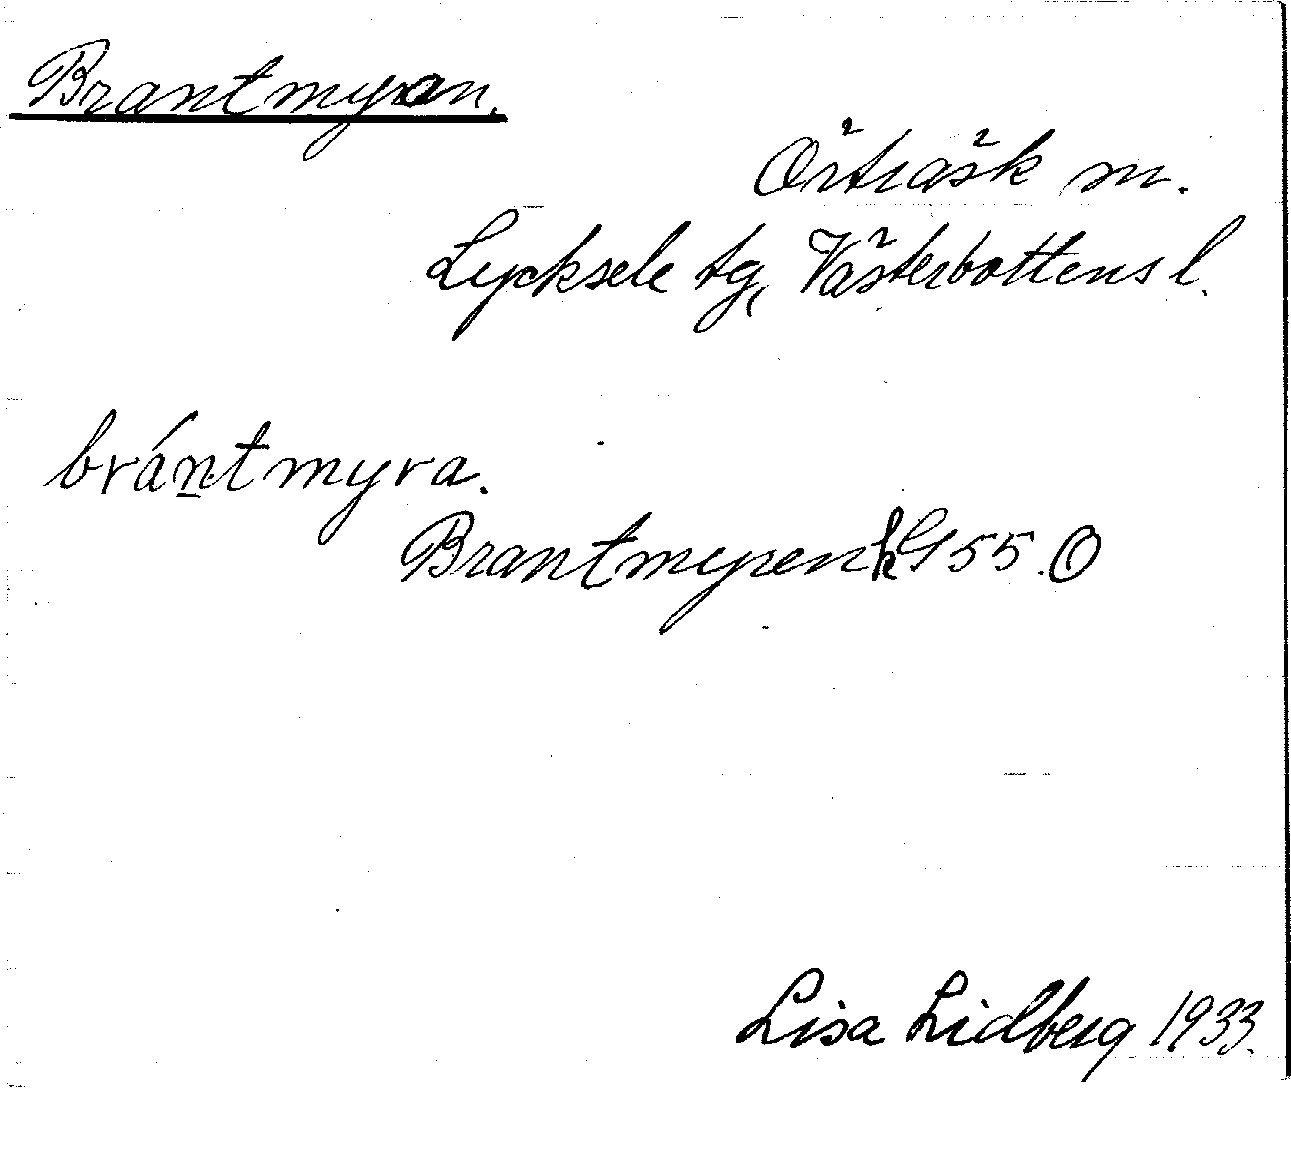 Brantmyran.
Örträsk sn.
Lycksele tg, Västerbottens l.
bránt myra.
Brantmyren k G 55. O
Lisa Lidberg 1933.